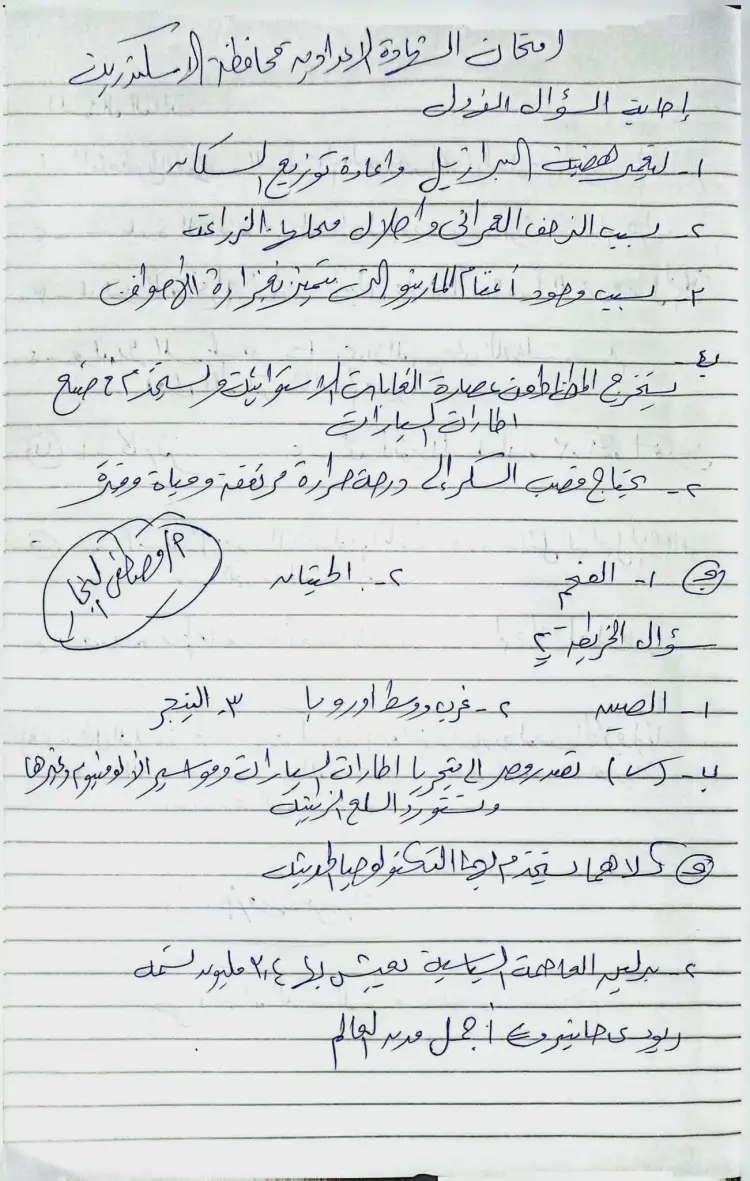 امتحان الشهادة الاعدادية محافظة الاسكندرية
إجابة السؤال الاول
١- لتعمير هضبة البرازيل واعادة توزيع السكان
٢- بسبب الزحف العمرانى واحلال محلها الزراعة
٣- بسبب وجود أغنام المارينو التى تتميز بغزارة الأصواف
ب-
يستخرج المطاط من عصارة الغابات الاستوائية ويستخدم فى صنع
اطارات السيارات
٢- يحتاج قصب السكر إلى درجة حرارة مرتفعة ومياة وفيرة
ج ١- الفحم ٢- الحيتان
م/مصطفى النجار
سؤال الخريطة
١- الصين ٢- غرب ووسط اوروبا ٣- النيجر
ب- (س) تصدر مصر إلى نيجريا اطارات السيارات ومواسير الالومنيوم وغيرها
وتستورد السلع الزراعية
ج كلاهما يستخدم بهما التكنولوجيا الحديثة
٢- برلين العاصمة السياسية يعيش بها ٣,٤ مليون نسمة
ريودى جانيرو أجمل مدن العالم